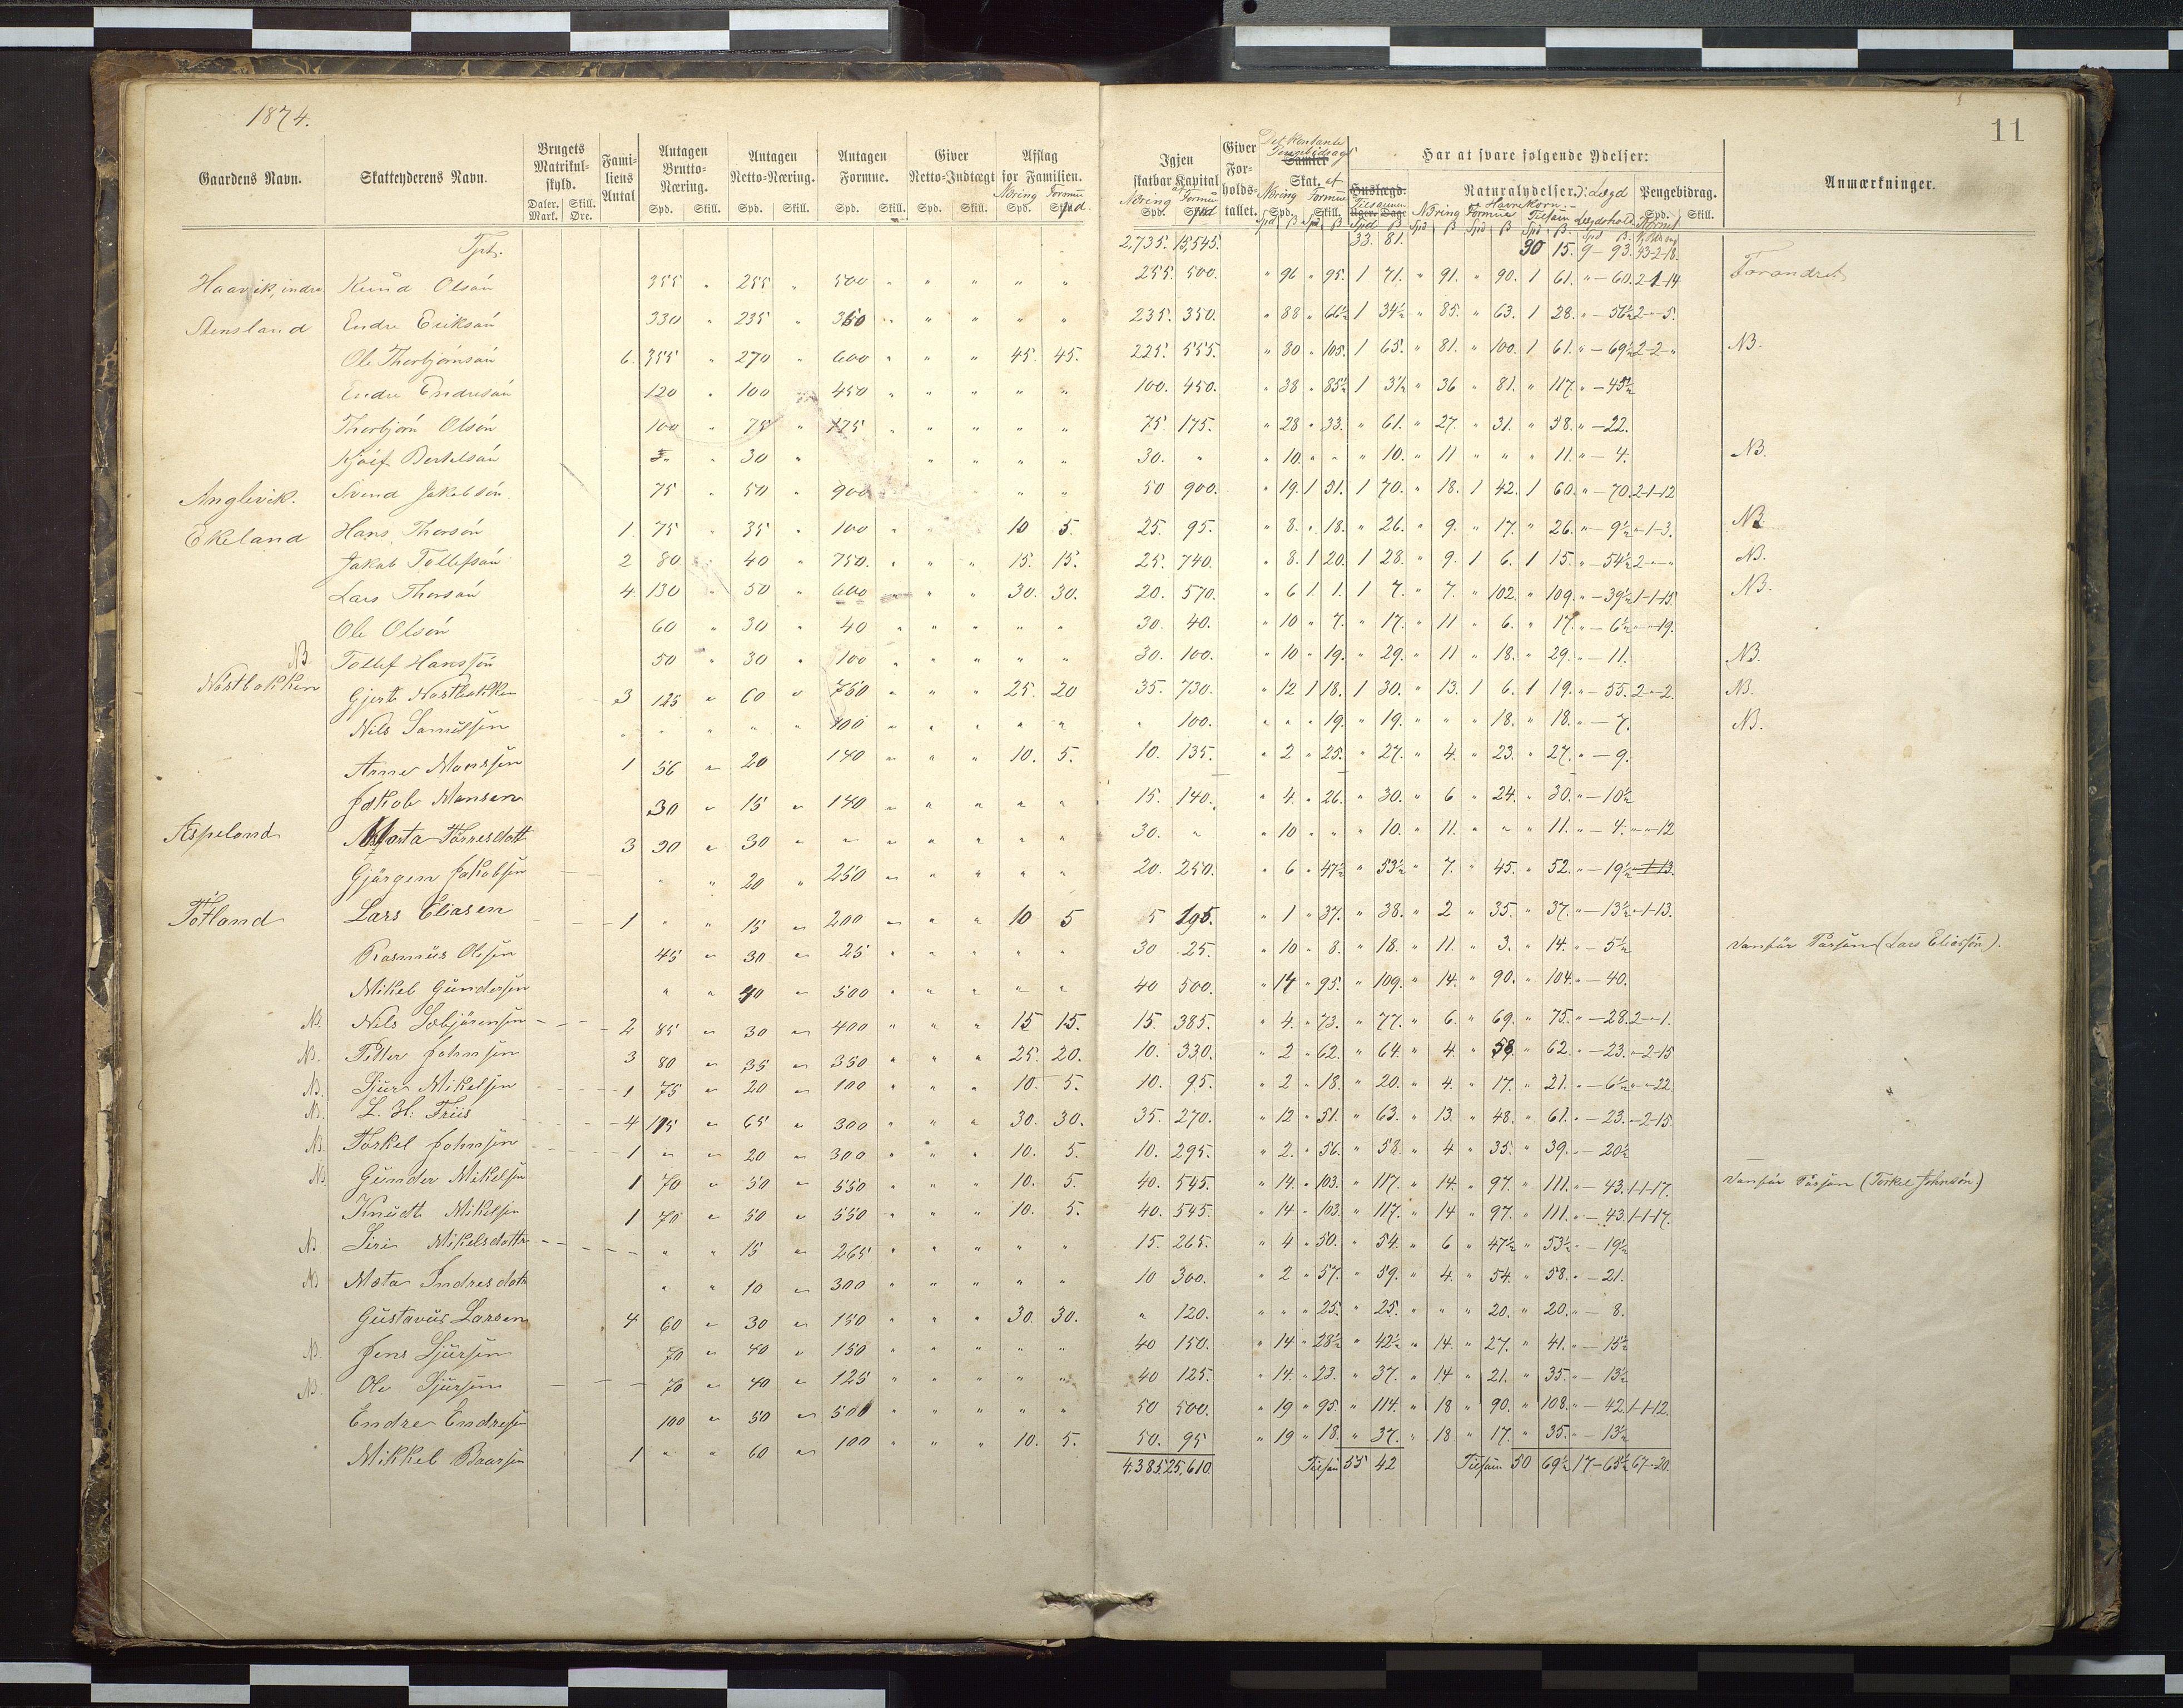 1874.
11
Gaardens Navn. Skatteyderens Navn. Brugets Matrikulskyld. Daler. Mark. Skill. Øre. Familiens Antal Antagen Brutto-Næring. Spd. Skill. Antagen Netto-Næring. Spd. Skill. Antagen Formue. Spd. Skill. Giver Netto-Indtægt Spd. Skill. Afslag for Familien. Næring Formue Spd. Spd
Igjen skatbar Kapital af Næring Formue Spd. Spd Giver Forholdstallet. Det Kontante Pengebidrag Samlet Skat. af Næring Formue Spd. Skill. Har at svare følgende Ydelser: Huslægd. Tilsammen Uger. Dage Naturalydelser ɔ: Lægd og Havrekorn. Næring Formue Tilsam Lægdshold Pengebidrag. Spd. Skill. Anmærkninger.
Tpt. 2,735. 15,545. 33. 81. 30 15. 9 - 93. 43-2-18.
Haavik, indre Knud Olsøn 355 " 255 " 500 " " " " " 255. 500. " 96 " 95. 1 71. " 91. " 90. 1 61. " - 60. 2-1-14 Forandret
Stensland Endre Eriksøn 330 " 235 " 350 " " " " " 235. 350. " 88 " 66½ 1 34½ " 85. " 63. 1 28. " - 56½ 2-"-5.
Ole Thorbjørnsøn 6. 355 " 270 " 600 " " " 45. 45. 225. 555. " 80 " 105. 1 65. " 81. " 100. 1 61. " - 69½ 2-2-" NB.
Endre Endresøn 120 " 100 " 450 " " " " " 100. 450. " 38 " 85½ 1 3½ " 36 " 81. " 117. " - 45½
Thorbjørn Olsøn 100 " 75 " 175 " " " " " 75. 175. " 28 " 33. " 61. " 27. " 31. " 58. " - 22.
Bertelsøn 30 " " " " " 30. " " 10. " " " 10. " 11 " " " 11. " - 4. NB.
Anglevik. Svend Jakobsøn 75 " 50 " 900 " " 50 900. " 19. 1 51. 1 70. " 18. 1 42. 1 60. " - 70. 2-1-12
Ekeland Hans Thorsøn 1. 75 " 35 " 100 " " 10 5. 25. 95. " 8. " 18. " 26. " 9. " 17. " 26. " - 9½ "-1-3. NB
Jakob Tollefsøn 2 80 " 40 " 750. " " " 15. 15. 25. 740. " 8. 1 20. 1 28. " 9. 1 6. 1 15. " - 54½ 2-"-" NB.
Lars Thorsøn 4. 130 " 50 " 600 " " " 30. 30. 20. 570. " 6 1 1. 1 7. " 7. " 102. " 109. " - 39½ 1-1-15 NB.
Ole Olsøn 60 " 30 " 40 " " " " " 30. 40. " 10 " 7. " 17. " 11 " 6. " 17. " - 6½ "-"-19.
NB. Tollef Hanssøn 50 " 30 " 100 " " " " " 30. 100. " 10 " 19. " 29. " 11 " 18. " 29. " - 11. NB.
Nøstbakken Gjert Nøstbakken 3 125 " 60 " 750 " " " 25. 20 35. 730. " 12 1 18. 1 30. " 13. 1 6. 1 19. " - 55. 2-"-2. NB.
Nils Samulsen " " " " 100 " " " " " " 100. " " " 19. " 19. " " " 18. " 18. " - 7. NB.
Arne Monssen 1 56 " 20 140 " " " 10. 5. 10. 135. " 2 " 25. " 27. " 4. " 23. " 27. " - 9.
Jakob Monsen 30 " 15 " 140 " " " " " 15. 140. " 4. " 26. " 30. " 6 " 24. " 30. " - 10½
Aspeland Marta Tørresdatt 3 90 " 30 " " " " " " " 30. " " 10 " " " 10. " 11. " " " 11. " - 4. "-"-12
Gjørgen Jakobsen " " 20 " 250 " " " " " 20. 250. " 6 " 47½ " 53½ " 7. " 45. " 52. " - 19½ 1-13.
Totland Lars Eliasen 1 " " 15 " 200 " " " 10 5 5 195. " 1 " 37. " 38. " 2 " 35. " 37. " - 13½ "-1-13.
Rasmus Olsen 45 " 30 " 25 " " " " " 30 25. " 10 " 8. " 18. " 11. " 3. " 14. " - 5½ vanfør Person (Lars Eliassøn).
Mikel Gundersen " " 40 " 500 " " " " " 40 500. " 14 " 95. " 109. " 14. " 90. " 104. " - 40.
NB. Nils 2 85 " 30 " 400 " " " 15 15. 15. 385. " 4. " 73. " 77. " 6. " 69. " 75. " - 28. 2-"-1.
NB. Petter Johnsen 3 80 " 35 " 350 " " " 25. 20. 10. 330. " 2 " 62. " 64. " 4. " 58. " 62. " - 23. "-2-15
NB. Sjur Mikelsen 1 75 " 20 " 100 " " " 10. 5. 10. 95. " 2 " 18. " 20. " 4. " 17. " 21. " - 6½ "-"-22.
NB. L. H. Friis 4 115 " 65 " 300 " " " 30. 30. 35. 270. " 12 " 51. " 63. " 13. " 48. " 61. " - 23. "-2-15.
NB. Torkel Johnsen 1 " " 20 " 300 " " " 10. 5. 10. 295. " 2. " 56. " 58. " 4 " 35. " 39. " - 20½
NB. Gunder Mikelsen 1 70 " 50 " 550 " " " 10. 5. 40. 545. " 14. " 103. " 117. " 14. " 97. " 111. " - 43. 1-1-17. vanfør Person (Torkel Johnsøn)
Knudt Mikelsen 1 70 " 50 " 550 " " " 10. 5. 40. 545. " 14 " 103. " 117. " 14 " 97. " 111. " - 43. 1-1-17.
NB Siri Mikelsdatter " " 15 " 265 " " " " " 15. 265. " 4 " 50. " 54. " 6 " 47½ " 53½ " - 19½
NB Mata Indresdatr " " 10 " 300 " " " " " 10 300. " 2 " 57. " 59. " 4. " 54. " 58. " - 21.
Gustavus Larsen 4 60 " 30 " 150 " " " 30. 30. " 120. " " " 25. " 25. " " " 20. " 20. " - 8.
NB. Jens Sjursen 70 " 40 " 150 " " " " " 40 150. " 14 " 28½ " 42½ " 14. " 27. " 41. " - 15½
NB. Ole Sjursen 70 " 40 " 125 " " " " " 40 125. " 14. " 23. " 37. " 14 " 21. " 35. " - 13½
Endre Endresen 100 " 50 " 500 " " " " " 50 500. " 19 " 95. " 114. " 18 " 90. " 108. " - 42. 1-1-12.
Mikkel Baarsen 1 " " 60 " 100 " " " 10. 5. 50. 95 " 19 " 18. " 37. " 18 " 17. " 35. " - 13½
4.385. 25,610. Tilsam 55 42 Tilsam 50 69½ 17-65½ 67-"-20.